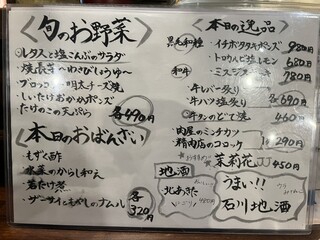 旬のお野菜
レタスと塩こんぶのサラダ
・焼長芋〜わさびしょうゆ〜
・ブロッコリー明太チーズ焼
・しいたけおかかポンズ
たけのこの天ぷら 各490円
本日のおばんざい
・もずく酢
・のからし和え
・若たけ煮
・ザーサイともやしのナムル 各320円
本日の逸品
黒毛和種 ・イチボタタキポンズ 980円
・トロウムビ塩レモン 680円
和牛 ・ミスジステーキ 780円
・牛レバー炙り
・牛ハツ塩炙り 各690円
牛タンのどて焼 460円
・肉屋のミンチカツ
・精肉店のコロッケ 各290円
茉莉花JJ 450円
地酒
北あきた
うまい!!
石川地酒